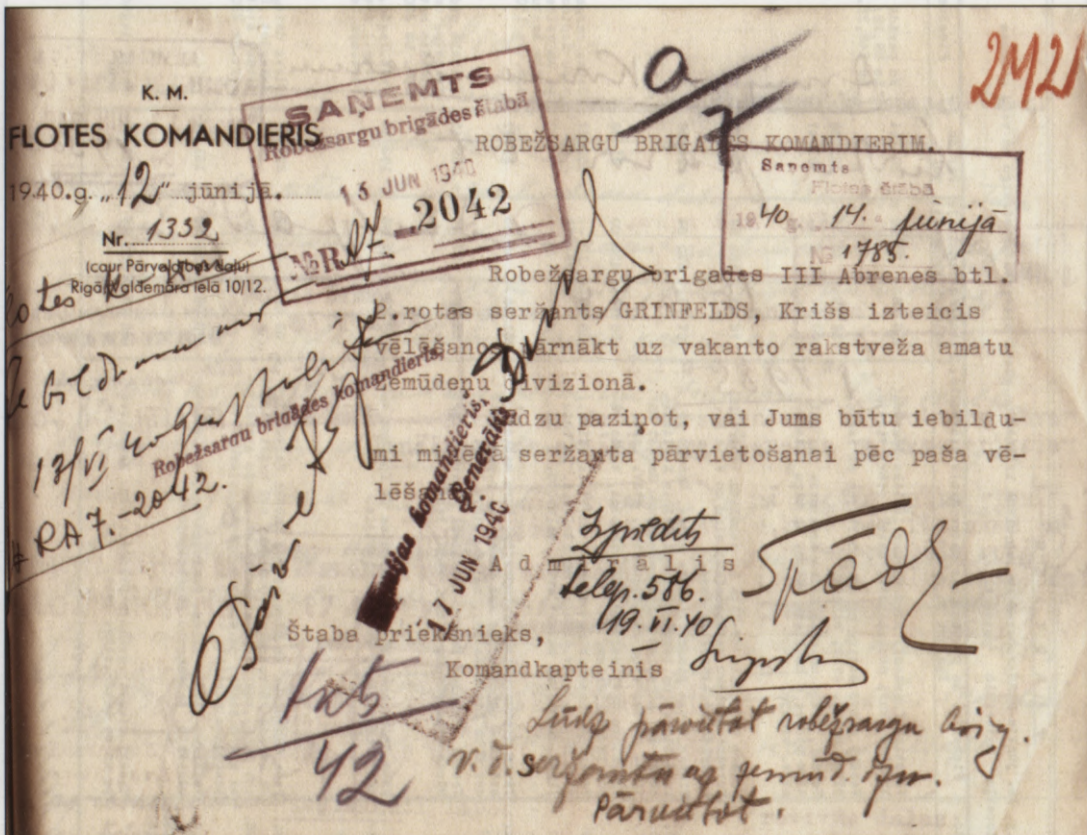 2421
a/7
K. M.
FLOTES KOMANDIERIS
1940.g. „12" jūnijā.
Nr. 1332
(caur Pārvaldības daļu)
Rīgā, Valdemāra ielā 10/12.
SAŅEMTS
Robežsargu brigādes štābā
13 JUN 1940
№ RA7.-2042
ROBEŽSARGU BRIGADES KOMANDIERIM.
Saņemts
Flotes štābā
1940 g. 14. jūnijā
№ 1785.
Robežsargu brigades III Abrenes btl.
2.rotas seržants GRINFELDS, Krišs izteicis
vēlēšanos pārnākt uz vakanto rakstveža amatu
zemūdeņu divizionā.
Lūdzu paziņot, vai Jums būtu iebildu-
mi minētā seržanta pārvietošanai pēc paša vē-
lēšanās.
Flotes
Iebildumu nav
13/VI 40
Robežsargu brigādes komandieris,
RA 7.-2042.
Armijas komandieris,
Ģenerālis
17 JUN 1940
Izpildīts
telep. 586.
19.VI.40
Admirālis
Spāde
Štaba priekšnieks,
Komandkapteinis
42
Lūdz pārvietot robežsargu brig.
v. d. seržantu uz zemūd.
Pārvietot.